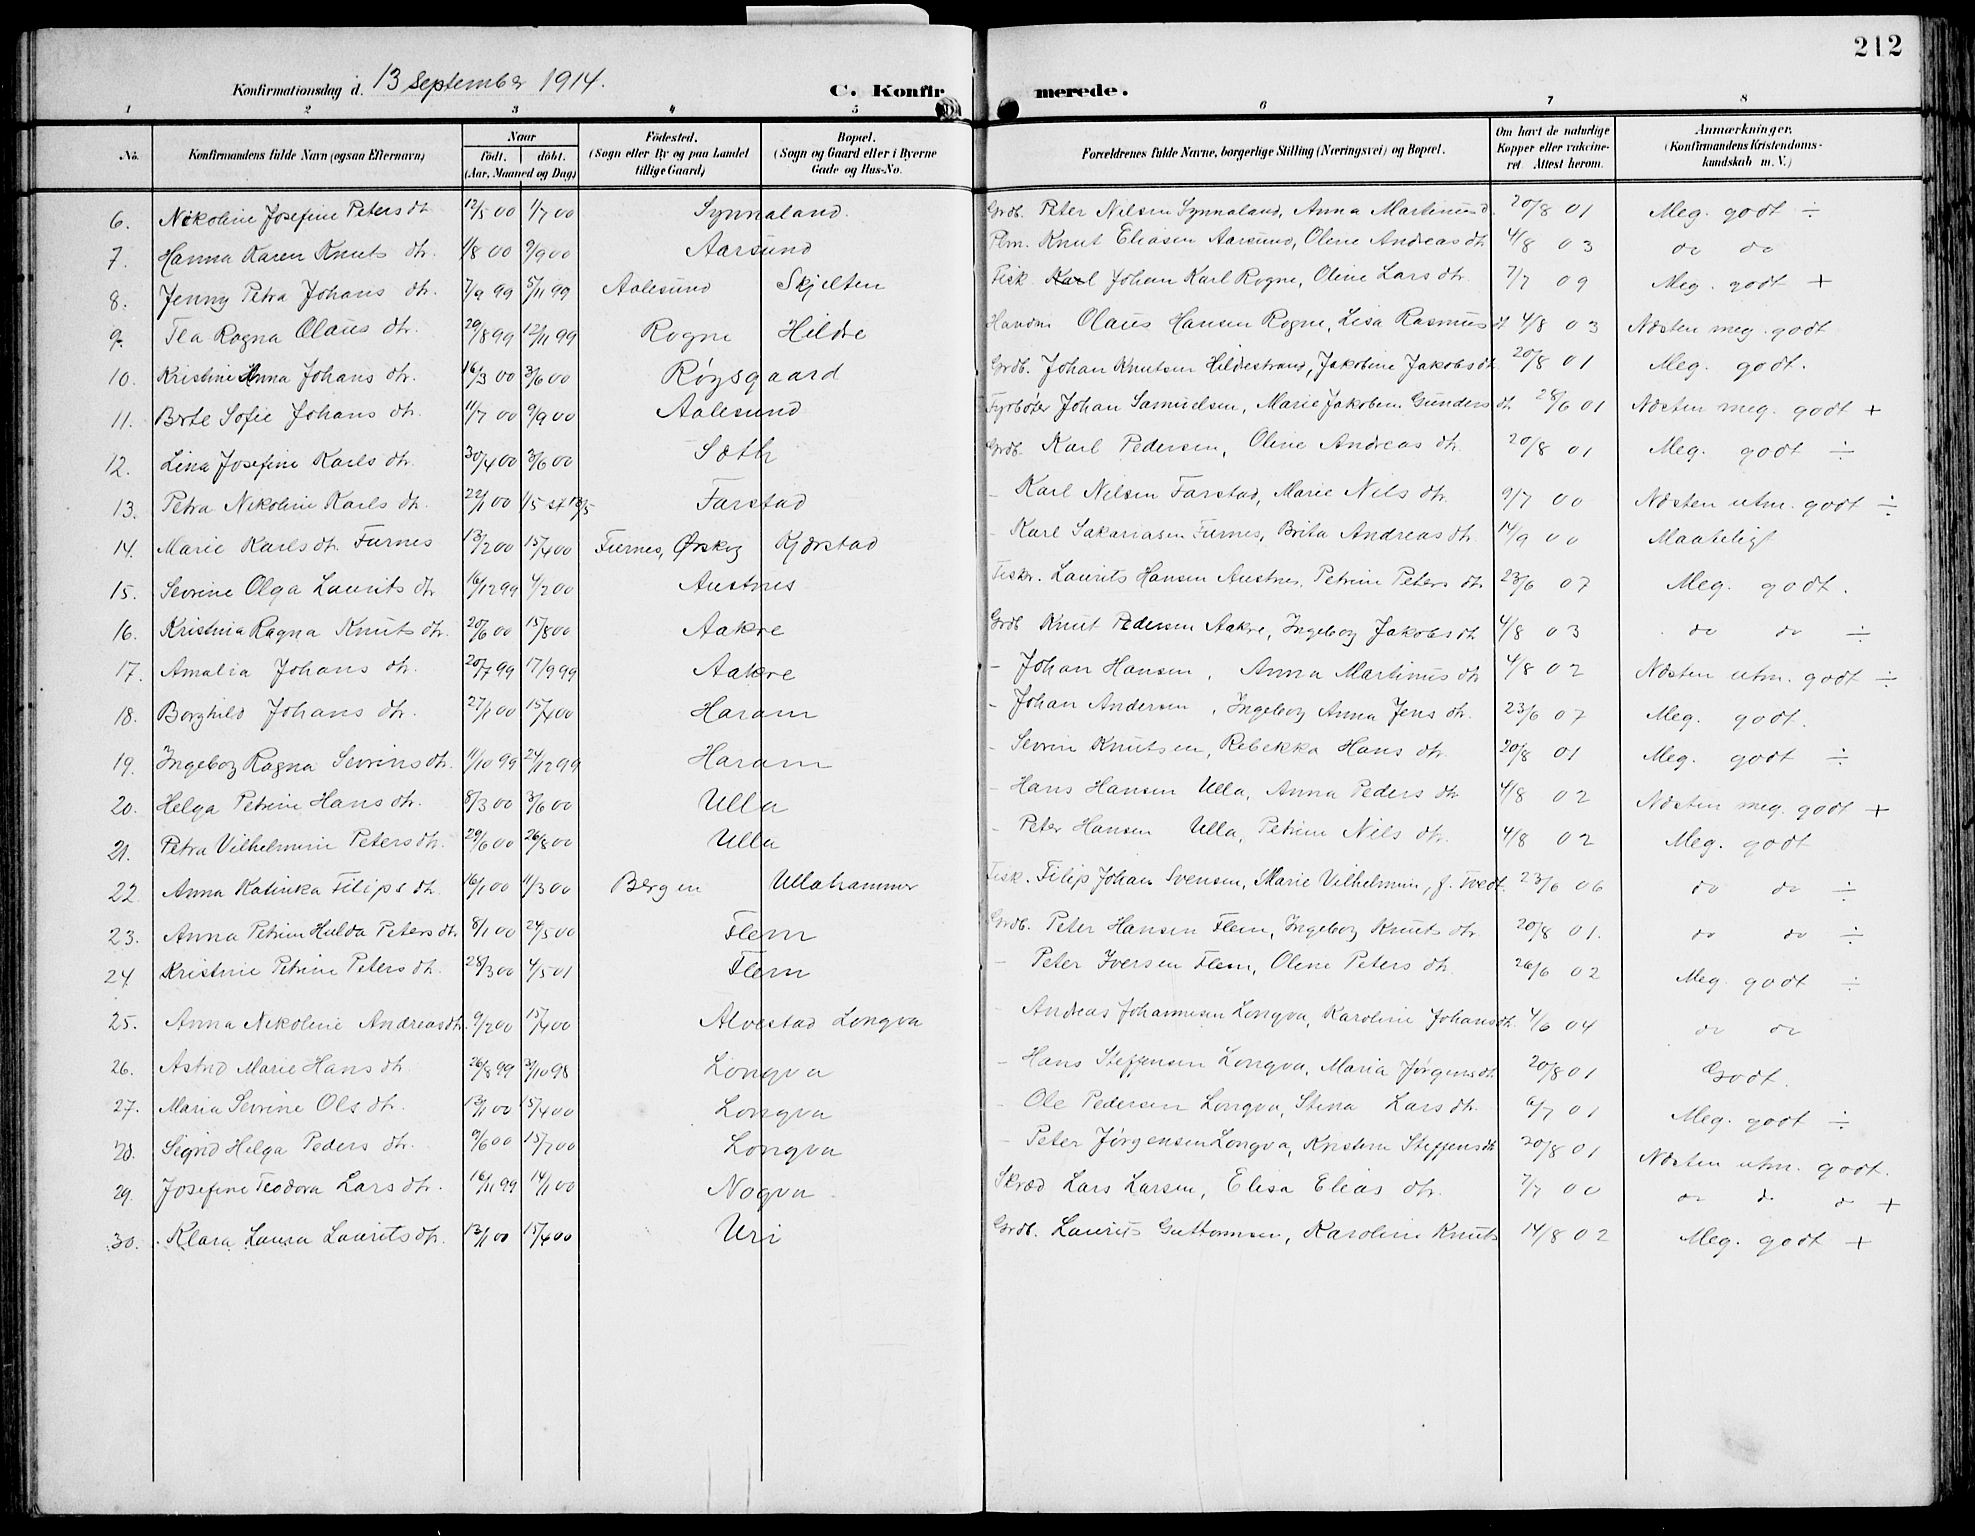 212
Konfirmationsdag d. 13 September 1914.
C. Konfirmerede.
1 2 3 4 5 6 7 8
No. Konfirmandens fulde Navn (ogsaa Efternavn) Naar født. døbt. (Aar, Maaned og Dag) Födested. (Sogn eller By og paa Landet tillige Gaard) Bopæl. (Sogn og Gaard eller i Byerne Gade og Hus-No. Forældrenes fulde Navne, borgerlige Stilling (Næringsvei) og Bopæl. Om havt de naturlige Kopper eller vakcineret. Attest herom. Anmærkninger. (Konfirmandens Kristendomskundskab m. V.)
6. Nikoline Josefine Petersdtr. 12/5 00 1/7 00 Synnaland. Grdb. Peter Nilsen Synnaland, Anna Martinusd. 20/8 01 Meg. godt ÷
7. Hanna Karen Knuts dtr. 1/8 00 9/9 00 Aarsund Plm. Knut Eliasen Aarsund, Oline Andreas dtr 4/8 03 do do
8. Jenny Petra Johans dtr. 7/9 99 5/11 99 Aalesund Skjelten Fisk Johan Karl Rogne, Oline Lars dtr. 7/7 09 Meg. godt +
9. Tea Ragna Olaus dtr. 29/8 99 12/11 99 Rogne Hildre Olaus Hansen Rogne, Lisa Rasmus d 4/8 03 Næsten meg. godt
10. Kristine Anna Johans dtr. 16/3 00 3/6 00 Røysgaard Grdb. Johan Knutsen Hildestrand, Jakobine Jakobsdtr 20/8 01 Meg. godt.
11. Brte Sofie Johans dtr. 11/7 00 9/9 00 Aalesund Fyrbøter Johan Samuelsen, Marie Jakobin. Gunders dtr 28/6 01 Næsten meg. godt +
12. Lina Josefine Karls dtr. 30/4 00 3/6 00 Sæth Grdb. Karl Pedersen, Oline Andreas dtr. 20/8 01 Meg. godt ÷
13. Petra Nikoline Karls dtr. 22/1 00 1/5 st 13/5 Farstad - Karl Nilsen Farstad, Marie Nils dtr. 9/7 00 Næsten utm. godt ÷
14. Marie Karlsdtr. Furnes 13/2 00 15/4 00 Furnes, Ørskog Kjærstad - Karl Sakariasen Furnes, Brita Andreas dtr. 14/9 00 Maateligt
15. Sevrine Olga Laurits dtr 16/12 99 4/2 00 Austnes Fiskr. Laurits Hansen Austnes, Petrine Peters dtr 23/6 07 Meg. godt.
16. Kristina Ragna Knuts dtr. 20/6 00 15/8 00 Aakre Grdb Knut Pedersen Aakre, Ingeborg Jakobs dtr 4/8 03 do do ÷
17. Amalia Johans dtr. 20/7 99 17/9 99 Aakre - Johan Hansen, Anna Martinus dtr 4/8 02 Næsten utm. godt ÷
18. Borghild Johans dtr. 27/1 00 15/4 00 Haram - Johan Andersen, Ingeborg Anna Jens dtr. 23/6 07 Meg. godt.
19. Ingeborg Ragna Sevrins dtr. 11/10 99 24/12 99 Haram - Sevrin Knutsen, Rebekka Hans dtr. 20/8 01 Meg. godt ÷
20. Helga Petrine Hans dtr. 8/3 00 3/6 00 Ulla - Hans Hansen Ulla, Anna Peders dtr 4/8 02 Næsten meg. godt +
21. Petra Vilhelmine Peters dtr. 29/6 00 26/8 00 Ulla - Peter Hansen Ulla, Petrine Nils dtr. 4/8 02 Meg. godt
22. Anna Katinka Filips dtr. 16/1 00 11/3 00 Bergen Ullahammer Fisk. Filip Johan Svensen, Marie Vilhelmine, f. Tvedt. 23/6 06 do do ÷
23. Anna Petrine Hulda Peters dtr 8/1 00 24/5 00 Flem Grdb. Peter Hansen Flem, Ingeborg Knuts dtr. 20/8 01. do do ÷
24. Kristine Petrine Peters dtr. 28/3 00 4/5 01 Flem - Peter Iversen Flem, Oline Peters dtr. 26/6 02 Meg godt ÷
25. Anna Nikoline Andreas dtr. 9/2 00 15/4 00 Alvestad Longva - Andreas Johannesen Longva, Karoline Johans dtr. 4/6 04 do do
26. Astrid Marie Hans dtr. 26/8 99 3/10 98 Longva - Hans Steffensen Longva, Maria Jørgens dtr. 20/8 01 Godt.
27. Maria Sevrine Ols dtr. 13/1 00 15/4 00 Longva - Ole Pedersen Longva, Stina Lars dtr. 6/7 01 Meg. godt ÷
28. Sigrid Helga Peders dtr. 9/6 00 15/7 00 Longva - Peter Jørgensen Longva, Kristine Steffens dtr 20/8 01 Næsten utm. godt.
29. Josefine Teodora Lars dtr. 16/11 99 14/1 00 Nogva Skræd Lars Larsen, Elisa Elias dtr. 7/7 00 do do do +
30. Klara Laura Laurits dtr. 13/1 00 15/4 00 Uri Grdb. Laurits Guttormsen, Karoline Knuts 14/8 02 Meg. godt +